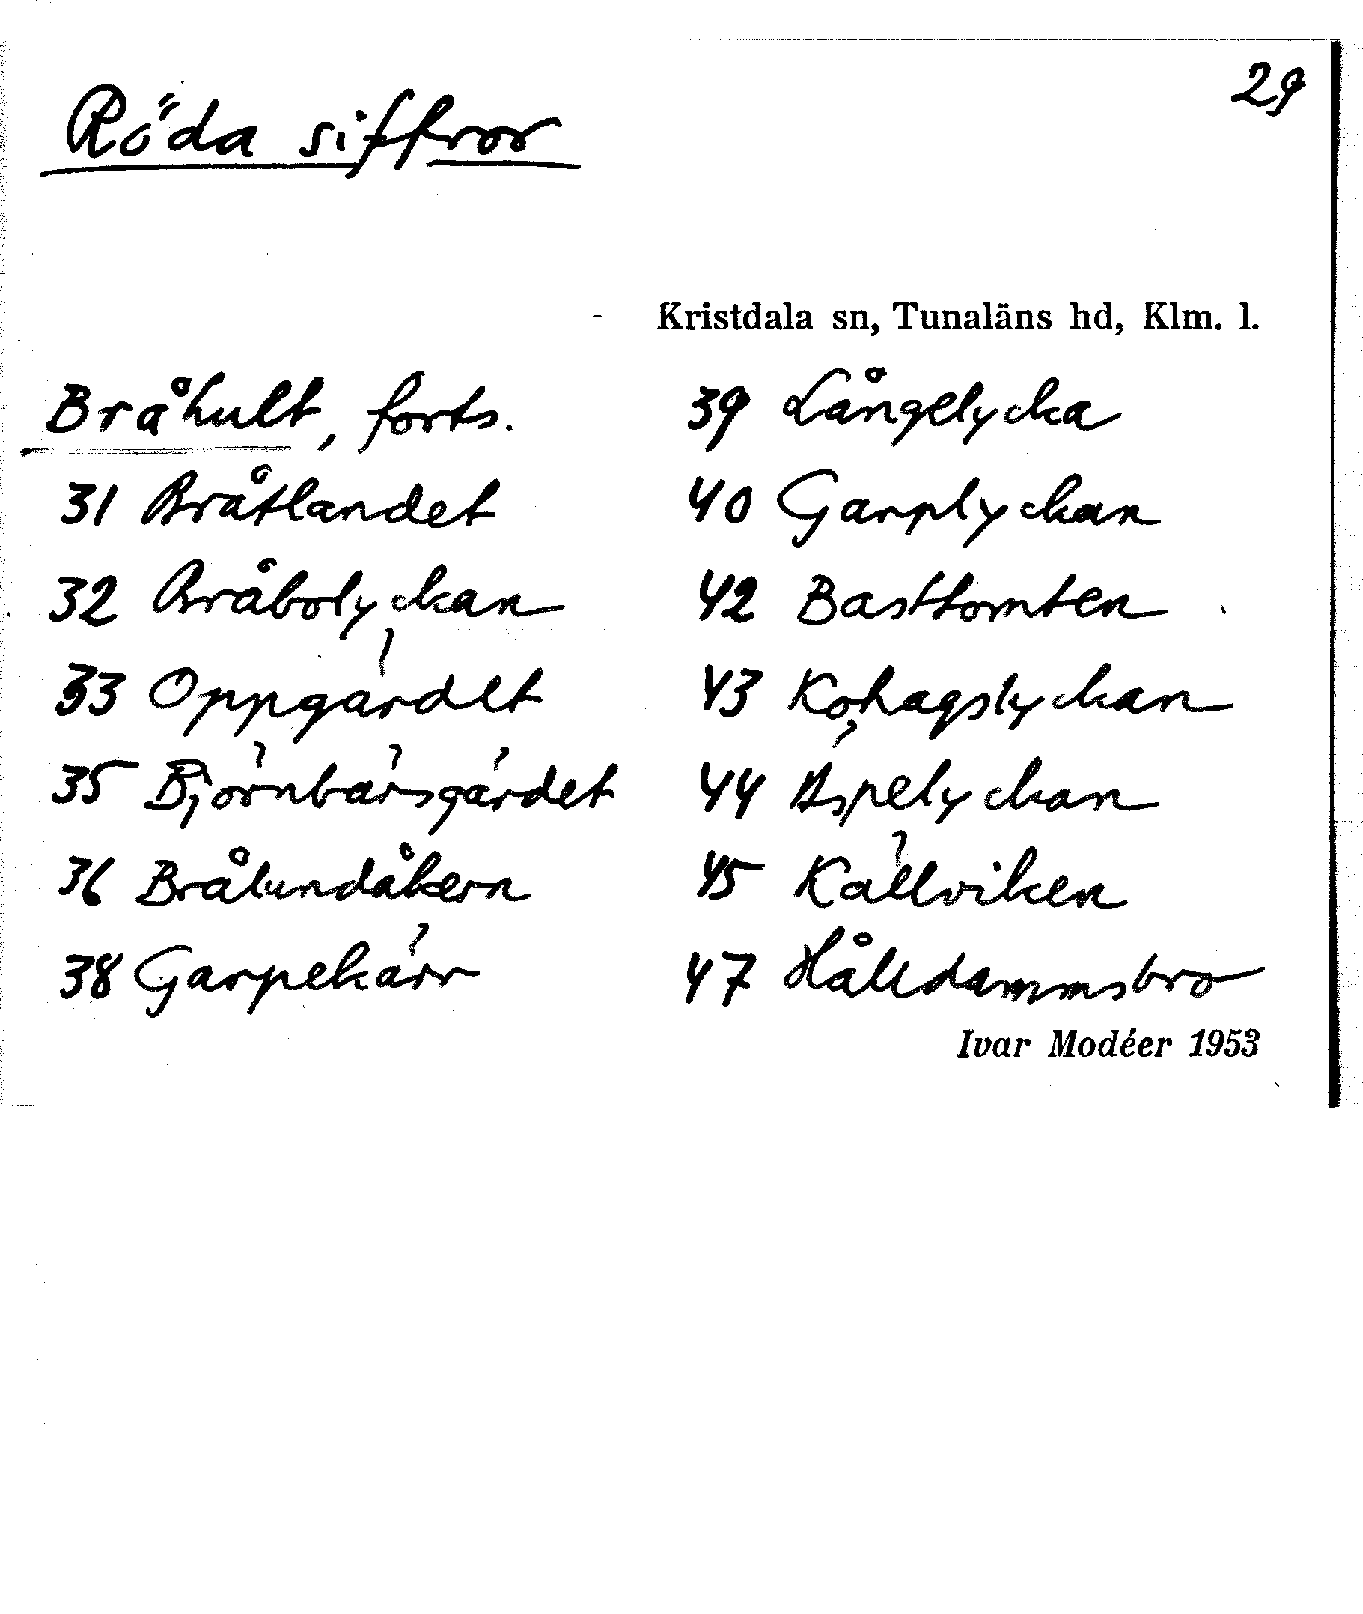 29
Röda siffror
Kristdala sn, Tunaläns hd, Klm. l.
Bråhult, forts.
31 Bråtlandet
32 Bråbolyckan
33 Oppgärdet
35 Björnbärsgärdet
36 Brålundåkern
38 Garpekärr
39 Långelycka
40 Garplyckan
42 Basttomten
43 Kohagslyckan
44 Äspelyckan
45 Källviken
47 Hålldammsbro
Ivar Modéer 1953